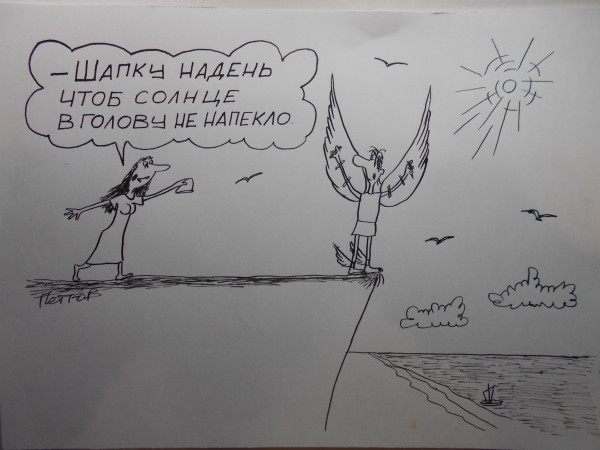 – ШАПКУ НАДЕНЬ
ЧТОБ СОЛНЦЕ
В ГОЛОВУ НЕ НАПЕКЛО.
Петров